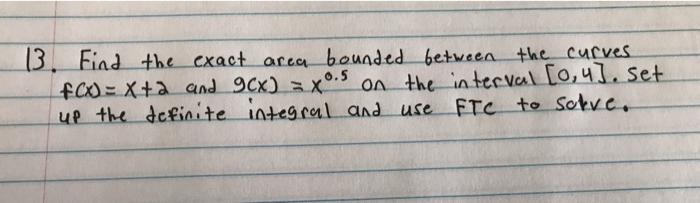 13. Find the exact area bounded between the curves
f(x) = x+2 and g(x) = x^0.5 on the interval [0,4]. Set
up the definite integral and use FTC to solve.